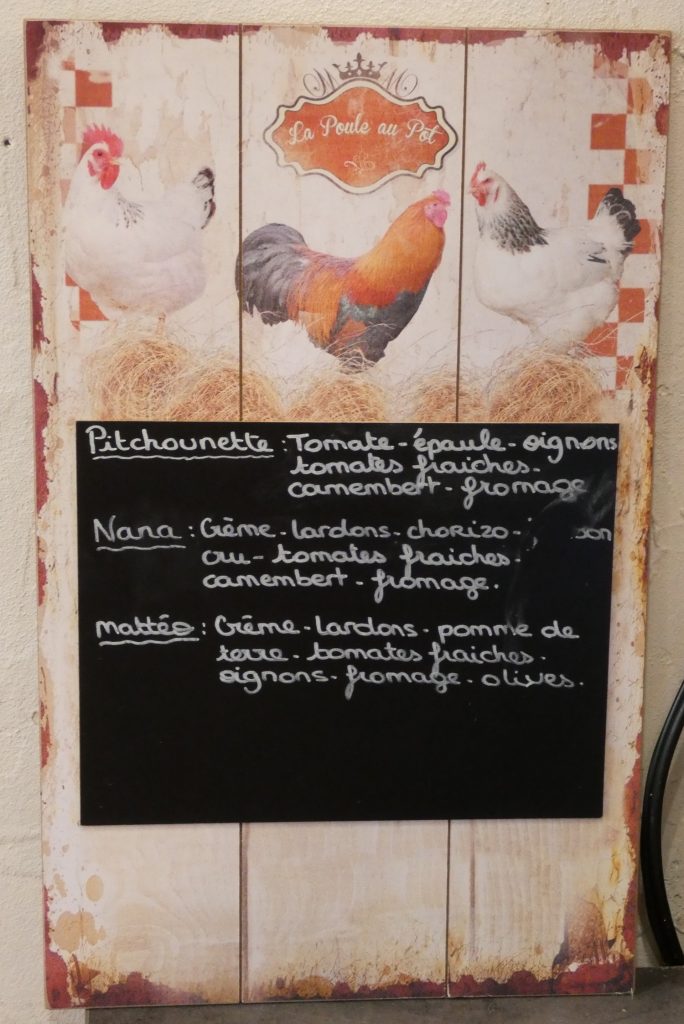 La Poule au Pot
Pitchounette : Tomate - épaule - oignons
tomates fraiches -
camembert - fromage
Nana : Crème - lardons - chorizo -
cru - tomates fraiches -
camembert - fromage.
Mattéo : Crème - lardons - pomme de
terre - tomates fraiches -
oignons - fromage - olives.